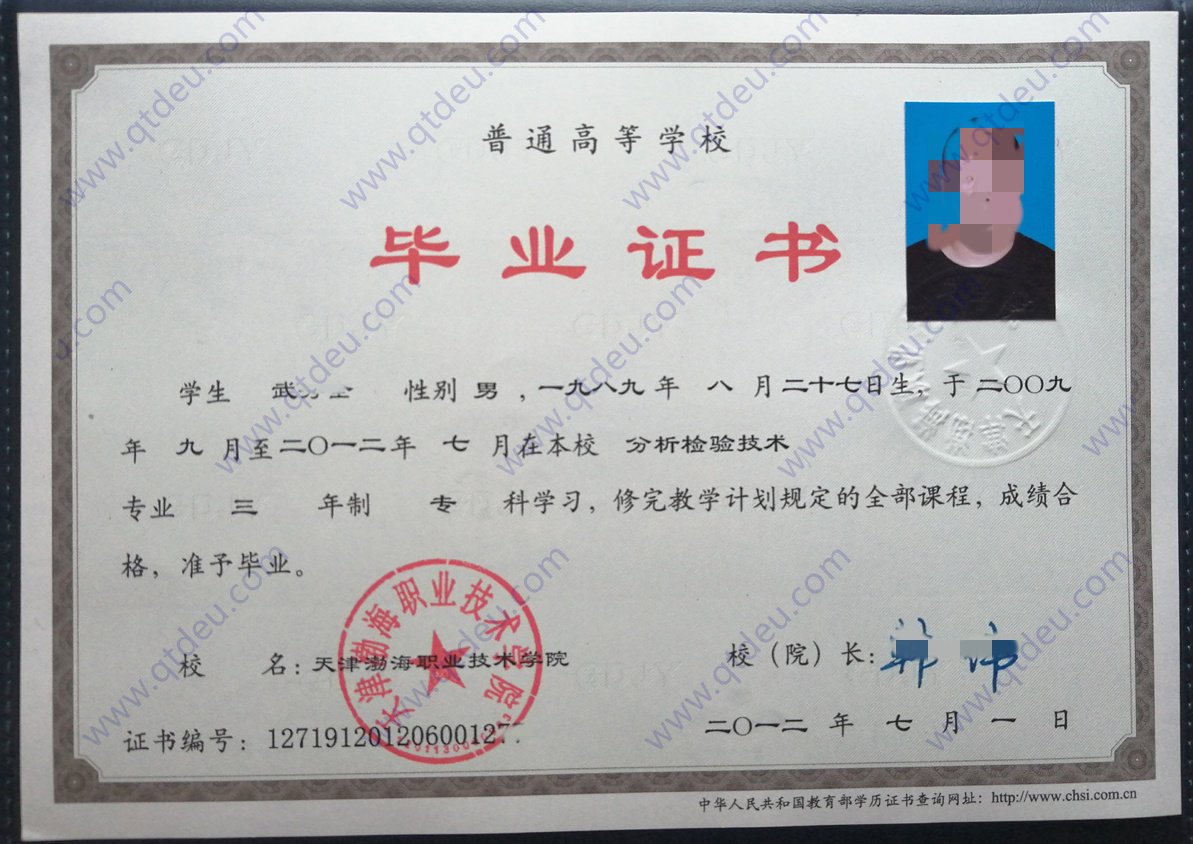 普通高等学校
毕业证书
学生 武 性别 男 ,一九八九 年 八 月 二十七日生, 于 二〇〇九
年 九 月至 二〇一二年 七 月在本校 分析检验技术
专业 三 年制 专 科学习, 修完教学计划规定的全部课程, 成绩合
格, 准予毕业。
天津渤海职业技术学院
校 名: 天津渤海职业技术学院
校（院）长:
证书编号: 127191201206001277
二〇一二 年 七 月 一 日
中华人民共和国教育部学历证书查询网址: http://www.chsi.com.cn
www.qtdeu.com